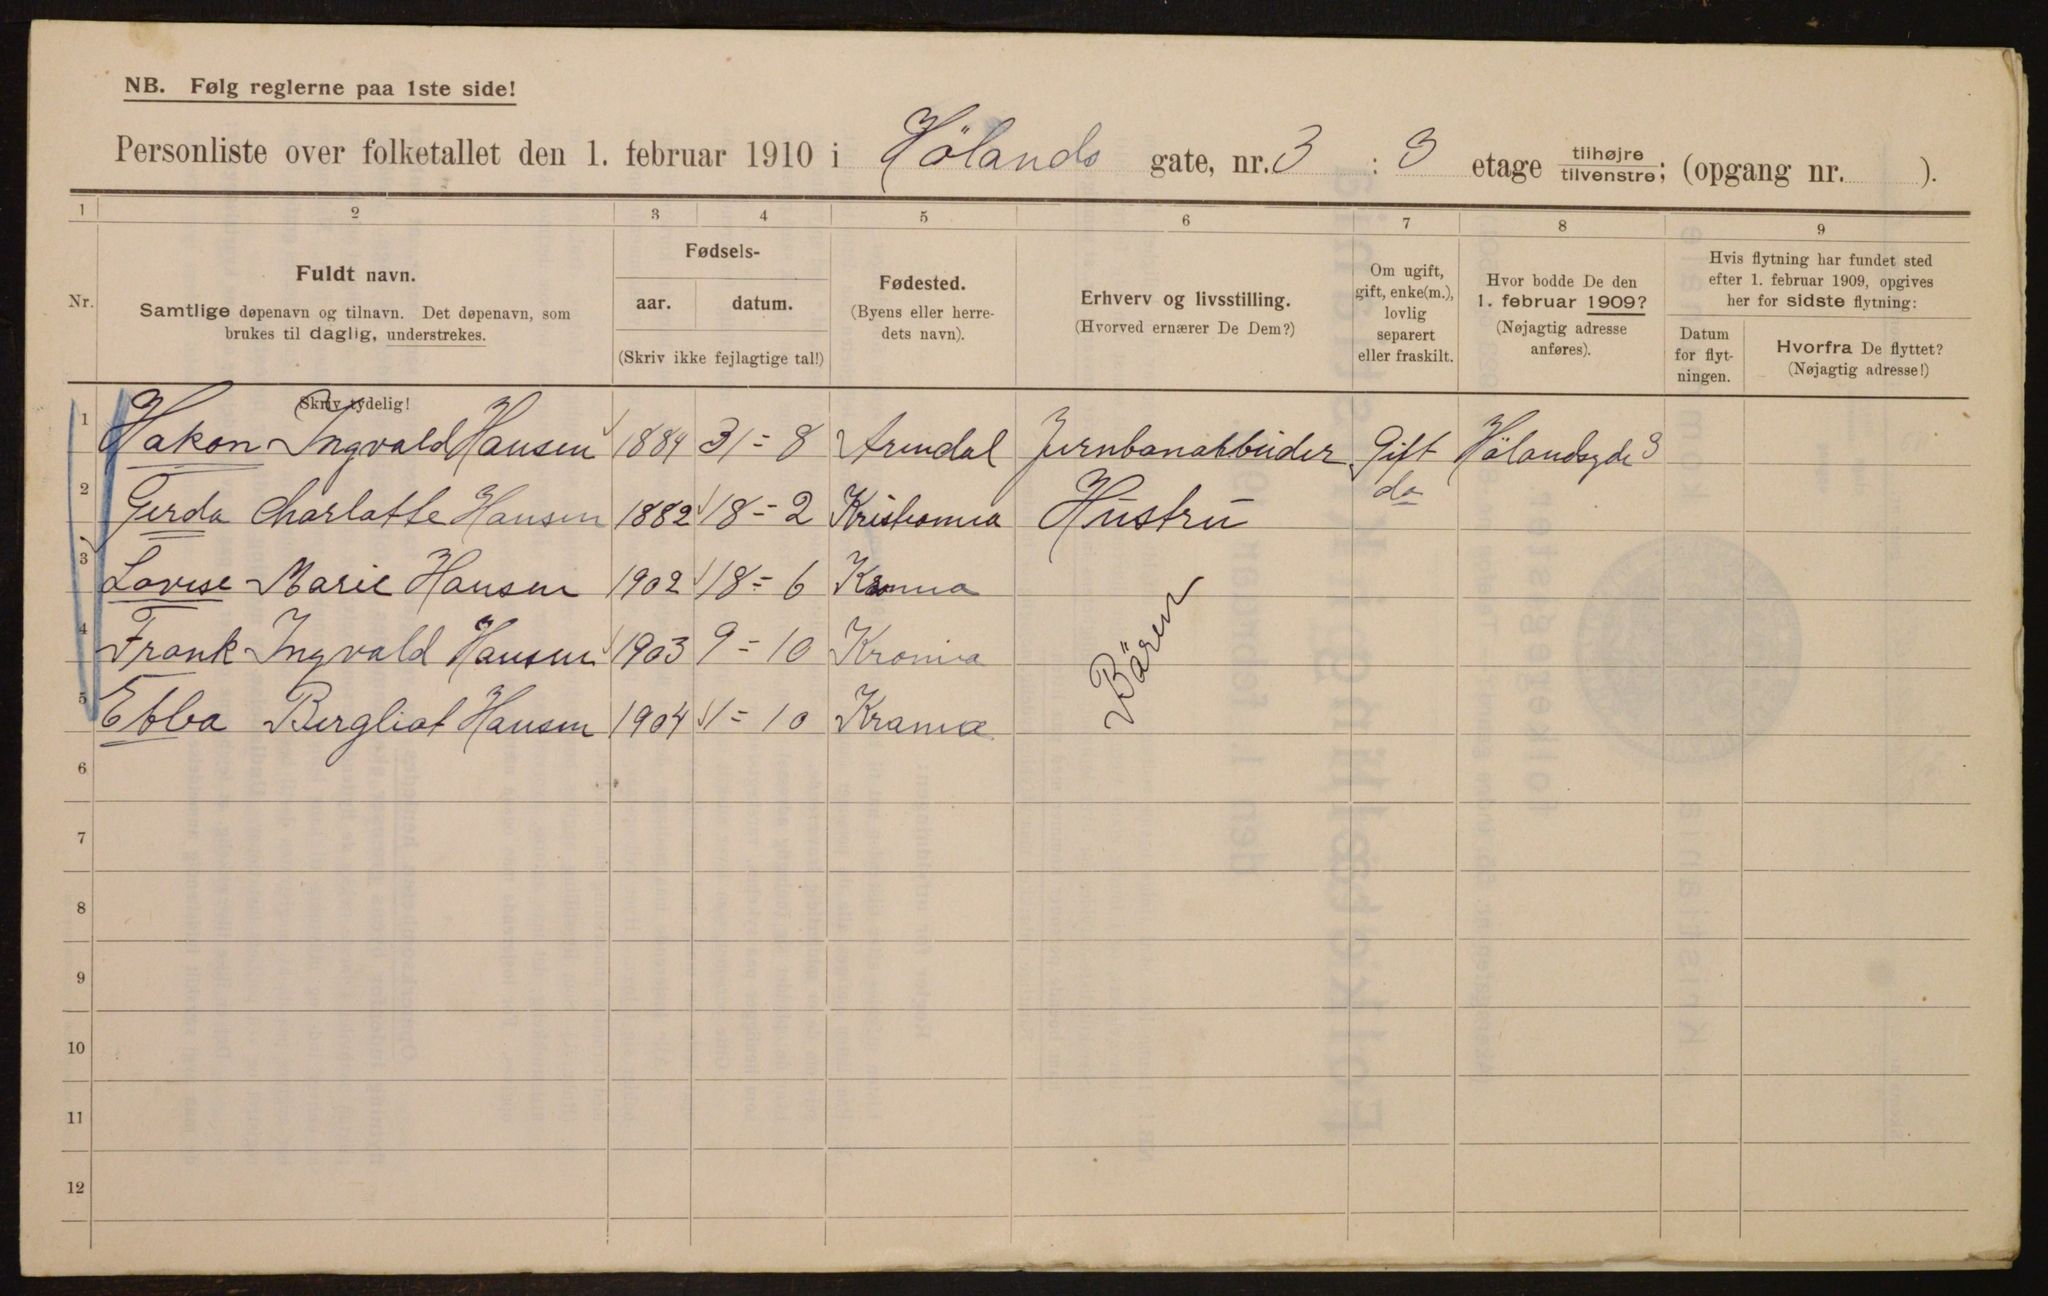 NB. Følg reglerne paa 1ste side!
Personliste over folketallet den 1. februar 1910 i Hölands gate, nr. 3 : 3 etage tilhøjre tilvenstre; (opgang nr. ).
1 2 3 4 5 6 7 8 9
Nr.
Fuldt navn.
Samtlige døpenavn og tilnavn. Det døpenavn, som
brukes til daglig, understrekes.
Fødsels-
aar. datum.
(Skriv ikke fejlagtige tal!)
Fødested.
(Byens eller herre-
dets navn).
Erhverv og livsstilling.
(Hvorved ernærer De Dem?)
Om ugift,
gift, enke(m.),
lovlig
separert
eller fraskilt.
Hvor bodde De den
1. februar 1909?
(Nøjagtig adresse
anføres).
Hvis flytning har fundet sted
efter 1. februar 1909, opgives
her for sidste flytning:
Datum
for flyt-
ningen.
Hvorfra De flyttet?
(Nøjagtig adresse!)
Skriv tydelig!
1 Hakon Ingvald Hansen 1884 31=8 Arendal Jernbanarbeider Gift Hölandsgde 3
2 Gerda Charlotte Hansen 1882 18=2 Kristiania Hustru do
3 Lovise Marie Hansen 1902 18=6 Kronia
4 Frank Ingvald Hansen 1903 9=10 Kronia
5 Ebba Bergliot Hansen 1904 1=10 Krania
Bären
6
7
8
9
10
11
12